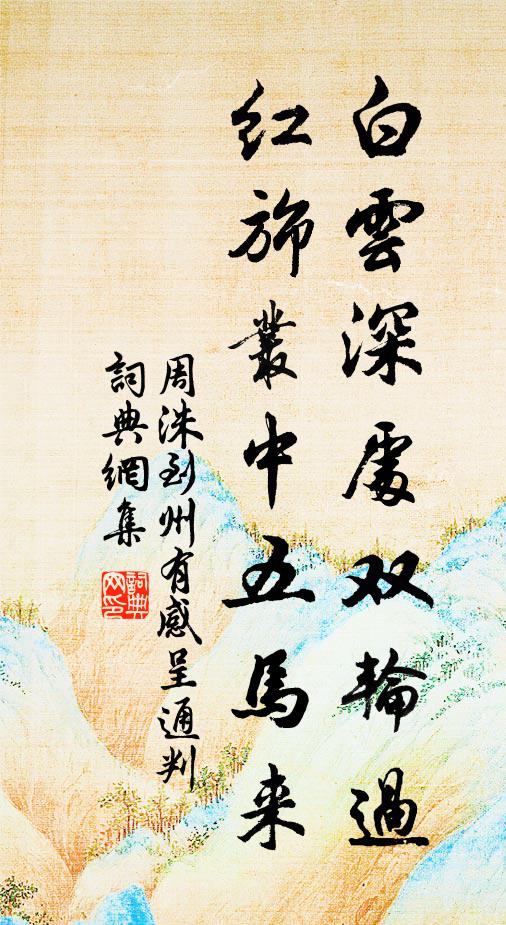 白雲深處双輪過
紅旆叢中五馬来
周洙到州有感呈通判
詞典網集
詞典
网印